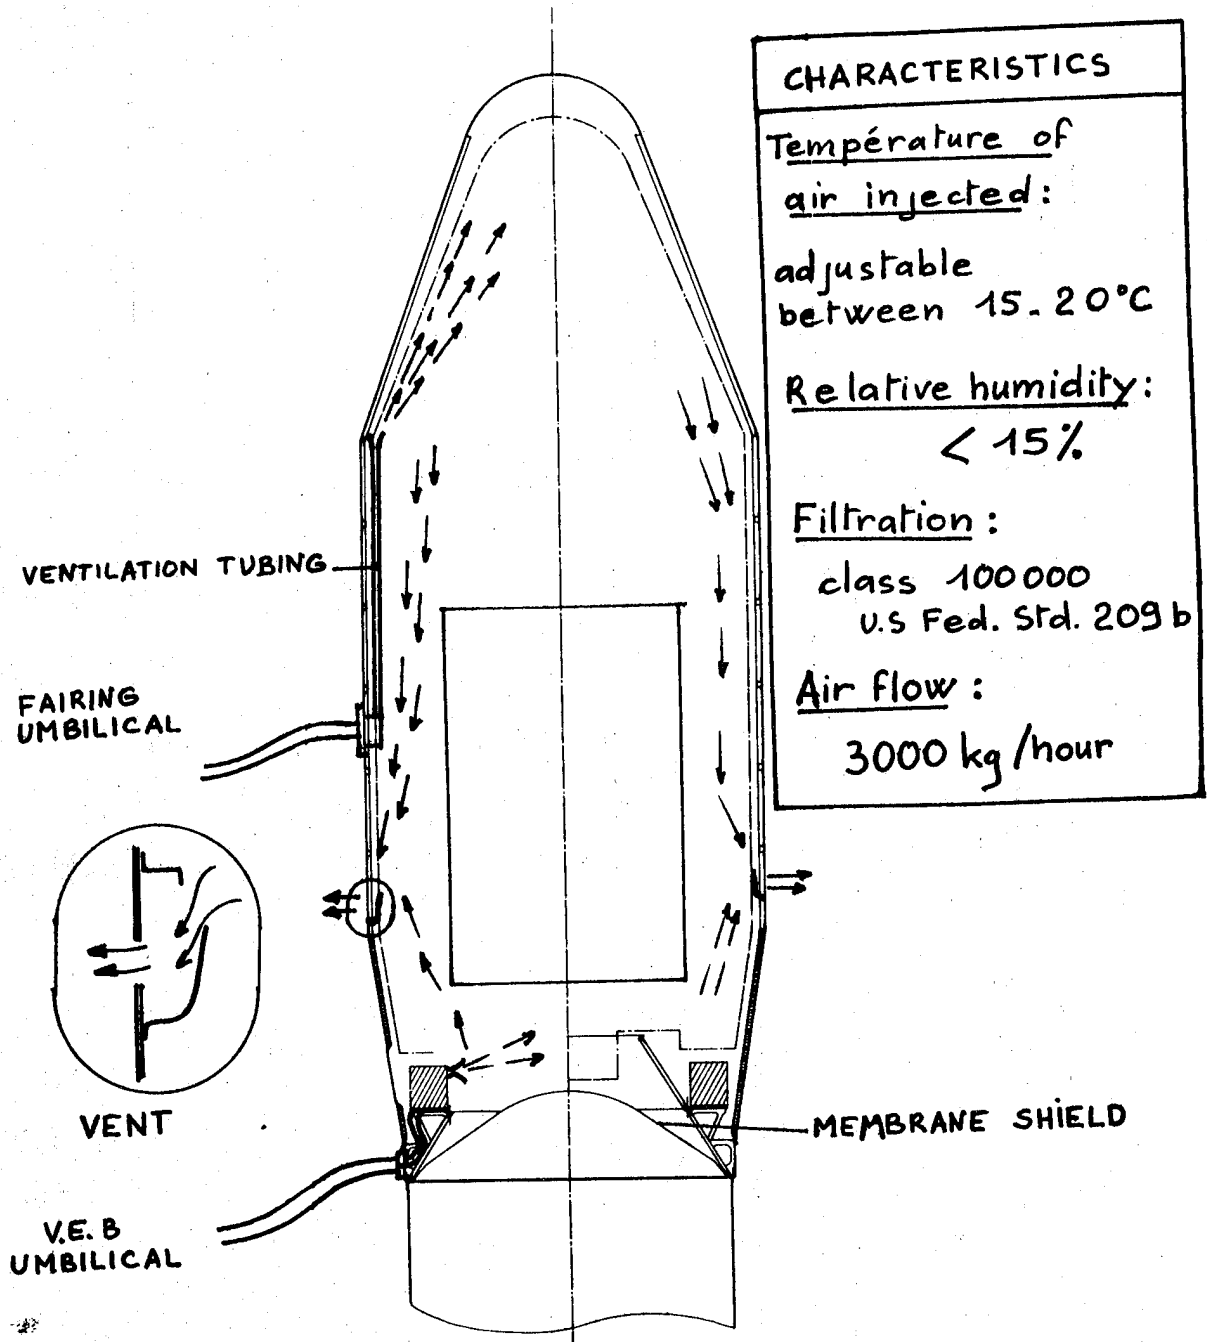 CHARACTERISTICS
Température of
air injected:
adjustable
between 15.20°C
Relative humidity:
< 15%
Filtration:
class 100000
U.S Fed. Std. 209 b
Air flow:
3000 kg/hour
VENTILATION TUBING
FAIRING
UMBILICAL
VENT
MEMBRANE SHIELD
V.E.B
UMBILICAL